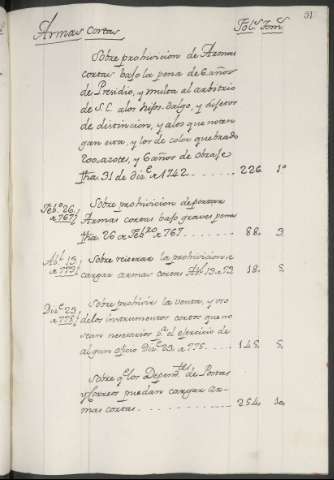 31
Armas Cortas
Fol.s Tom.s
Sobre prohivicion de Armas
cortas bajo la pena de 6 años
de Presidio, y multa al arbitrio
de S.E. alos hijos-dalgo, y sujetos
de distincion, y alos que noten-
gan esta, y los de color quebrado
200 azotes, y 6 años de obraje
fha 31 de dic.e de 1742 . . . . . . . 226. 1º
Feb.o 26,,
de 767
Sobre prohivicion de portar
Armas cortas bajo graves penas
fha 26 de Feb.ro de 767 . . . . . . . 88. 3
Ab.l 13,,
de 773
Sobre reiterar la prohivicion de
cargar armas cortas Ab.l 13 de 73. 18. 5
Dic.e 23
de 775
Sobre prohivir la venta, y uso
delos instrumentos cortos que no
sean necesarios p.a el exercicio de
algun oficio Dic.e 23. de 775 . . . . . 145. 5
Sobre q.e los Depend.tes de Rentas
y Correos puedan cargar ar-
mas cortas . . . . . . . . . . . 254. 10